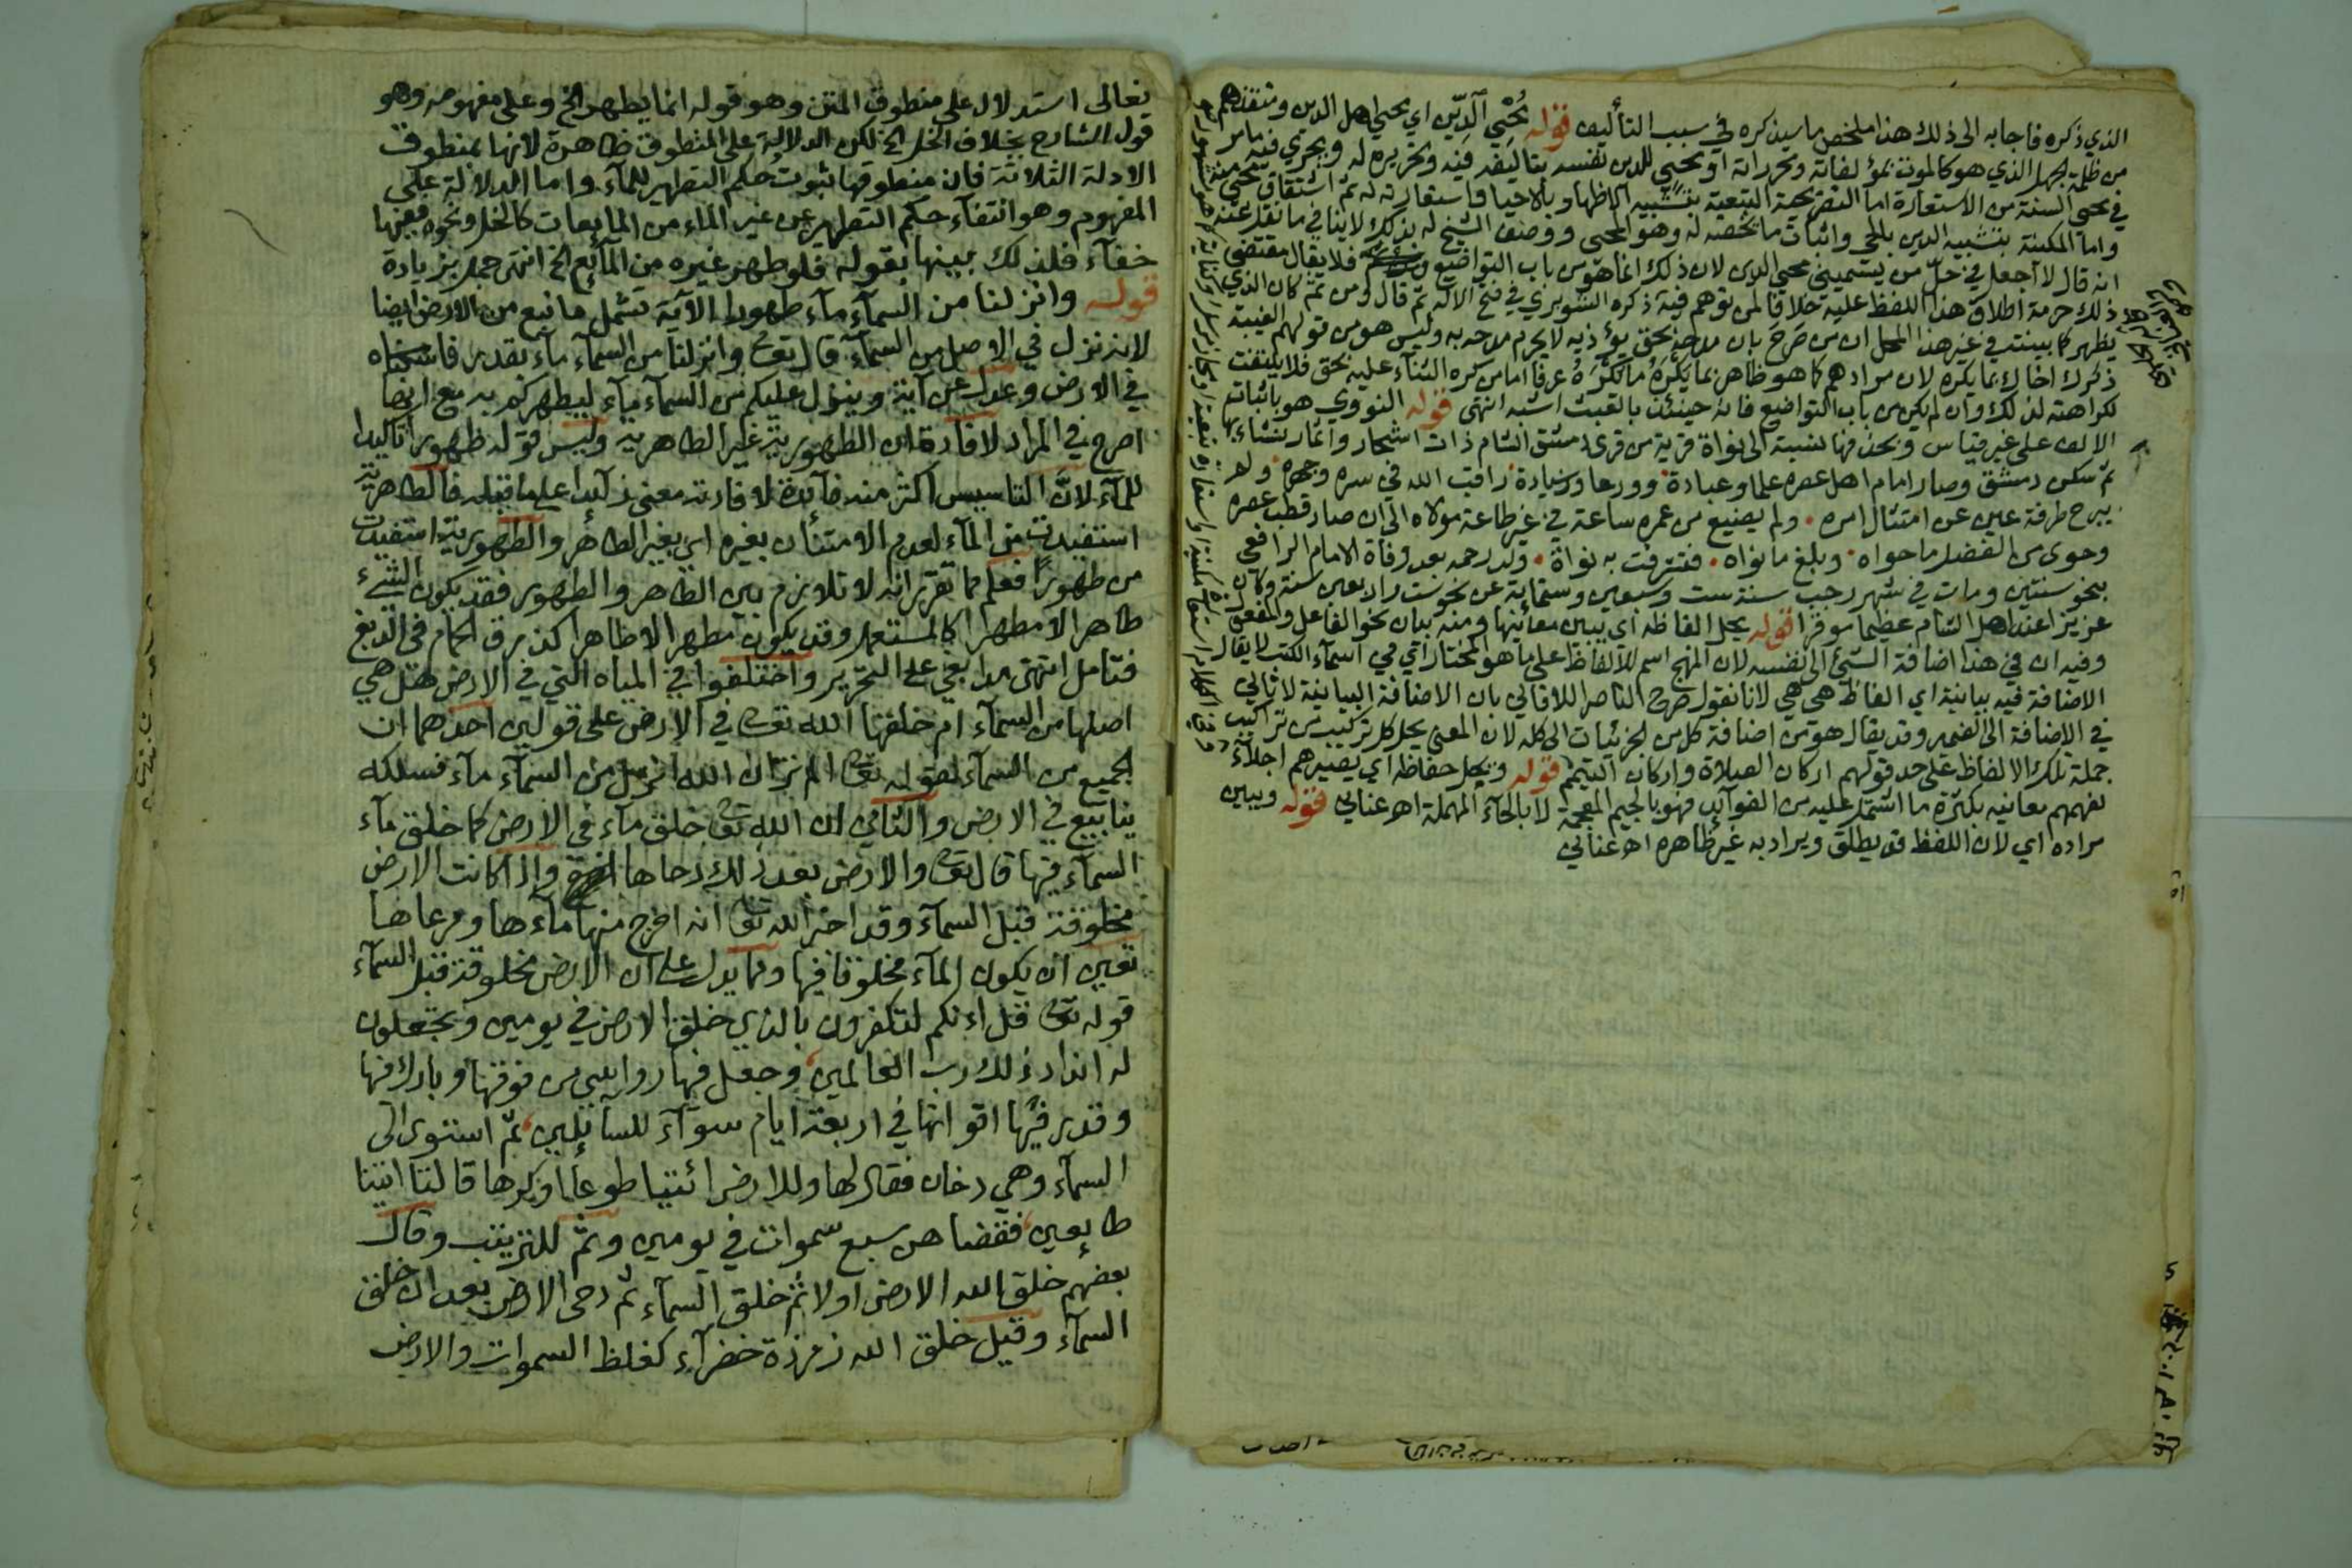 الذي ذكره فاجابه الى ذلك هذا ملخص ما سيذكره في سبب التأليف قوله مُحْيِي الدِّين اي يحيي اهل الدين ومنقذهم
من ظلمة الجهل الذي هو كالموت بمؤلفاته وتحريراته او محيي للدين نفسه بتاليفه فيه وتحريره له ويجري فيه ما مر
في محيي السنة من الاستعارة اما التصريحية التبعية بتشبيه الاظهار بالاحيا واستعارته له ثم اشتقاق محيي منه
واما المكنية بتشبيه الدين بالحي واثبات ما يخصه له وهو المحيي ووصف الشيخ له بذلك لا ينافي ما نقل عنه
انه قال لا اجعل في حلّ من يسميني محيي الدين لان ذلك انما هو من باب التواضع فلا يقال مقتضى
ذلك حرمة اطلاق هذا اللفظ عليه خلافا لمن توهم فيه ذكره الشوبري في فتح الاله ثم قال ومن ثم كان الذي
يظهر كما بينته في غير هذا المحل ان من صَرَحَ بان مدحه بحق يؤذيه لا يحرم مدحه به وليس هو من قولهم الغيبة
ذكرك اخاك بما يكره لان مرادهم كما هو ظاهر بما يَكْرَهُ ما يُكْرَهُ عرفا اما من كره الثناء عليه بحق فلا يلتفت
لكراهته لذلك وان لم يكن من باب التواضع فانه حينئذ بالعبث اشبه انتهى قوله النووي هو باثبات
الالف على غير قياس وبحذفها نسبة الى نواة قرية من قرى دمشق الشام ذات اشجار واثمار نشاء بها
ثم سكن دمشق وصار امام اهل عصره علما وعبادة وورعا وسيادة راقب الله في سره وجهره ولم
يبرح طرفة عين عن امتثال امره ولم يضيع من عمره ساعة في غير طاعة مولاه الى ان صار قطب عصره
وحوى من الفضل ما حواه وبلغ ما نواه فتشرفت به نواة ولد رحمه بعد وفاة الامام الرافعي
بنحو سنتين ومات في شهر رجب سنة ست وسبعين وستمائة عن نحو ست واربعين سنة وكان
عزيزا عند اهل الشام عظيما موقرا قوله يحل الفاظه اي يبين معانيها ومنه بيان نحو الفاعل والمفعول
وفيه ان في هذا اضافة الشيئ الى نفسه لان المنهج اسم للالفاظ على ما هو المختار اتي في اسماء الكتب لا يقال
الاضافة فيه بيانية اي الفاظ هي هي لانا نقول صرح الناصر اللاقاني بان الاضافة البيانية لا تاتي
في الاضافة الى الضمير وقد يقال هو من اضافة كل من الجزئيات الى كله لان المعنى يحل كل تركيب من تراكيب
جملة تلك الالفاظ على حد قولهم اركان الصلاة واركان التيمم قوله ويجل حفاظه اي يصيرهم اجلاء
بفهمهم معانيه بكثرة ما اشتمل عليه من الفوائد فهو بالجيم المعجمة لا بالحاء المهملة اهـ عناني قوله ويبين
مراده اي لان اللفظ قد يطلق ويراد به غير ظاهره اهـ عناني
تعالى استدلال على منطوق المتن وهو قوله انما يطهر الخ وعلى مفهومه وهو
قول الشارح بخلاف الخل الخ لكن الدلالة على المنطوق ظاهرة لانها بمنطوق
الادلة الثلاثة فان منطوقها ثبوت حكم التطهير للماء واما الدلالة على
المفهوم وهو انتفاء حكم التطهير عن غير الماء من المايعات كالخل ونحوه ففيها
خفاء فلذلك بينها بقوله فلو طهر غيره من المائع الخ انتهى جمل بزيادة
قوله وانزلنا من السماء ماء طهورا الآية تشمل ما نبع من الارض ايضا
لانه نزل في الاصل من السماء قال تعالى وانزلنا من السماء ماء بقدر فاسكناه
في الارض وعدل عن آية وينزل عليكم من السماء ماء ليطهركم به مع انها
اصرح في المراد لافادة ان الطهورية غير الطاهرية وليس قوله طهورا تاكيدا
للماء لانّ التاسيس اكثر منه فائدة لافادته معنى زائدا على ما قبله فالطاهرية
استفيدت من الماء لعدم الامتنان بغيره اي بغير الطاهر والطهورية استفيدت
من طهورًا فعلم مما تقرر انه لا تلازم بين الطاهر والطهور فقد يكون الشيء
طاهرا لا مطهرا كالمستعمل وقد يكون مطهرا لا طاهرا كذرق الحمام في الدبغ
فتامل انتهى مدابغي على التحرير واختلفوا في المياه التي في الارض هل هي
اصلها من السماء ام خلقها الله تعالى في الارض على قولين احدهما ان
الجميع من السماء لقوله تعالى الم تر ان الله انزل من السماء ماء فسلكه
ينابيع في الارض والثاني ان الله تعالى خلق ماء في الارض كما خلق ماء
السماء فيها قال تعالى والارض بعد ذلك دحاها اخرج واذا كانت الارض
مخلوقة قبل السماء وقد اخبر الله تعالى انه اخرج منها ماءها ومرعاها
تعين ان يكون الماء مخلوقا فيها ومما يدل على ان الارض مخلوقة قبل السماء
قوله تعالى قل ائنكم لتكفرون بالذي خلق الارض في يومين وتجعلون
له اندادا ذلك رب العالمين وجعل فيها رواسي من فوقها وبارك فيها
وقدر فيها اقواتها في اربعة ايام سواء للسائلين ثم استوى الى
السماء وهي دخان فقال لها وللارض ائتيا طوعا او كرها قالتا اتينا
طايعين فقضاهن سبع سموات في يومين وثمّ للترتيب وقال
بعضهم خلق الله الارض اولا ثم خلق السماء ثم دحى الارض بعد ان خلق
السماء وقيل خلق الله زمرذة خضراء كغلظ السموات والارض